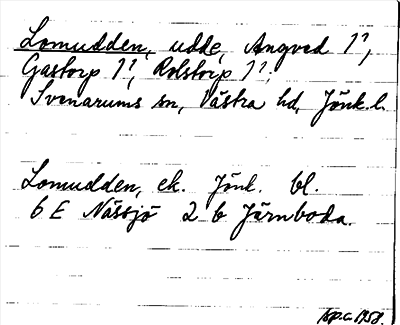 Lomudden, udde, Angved 1²,
Gastorp 1², Rolstorp 1²;
Svenarums sn, Västra hd, Jönk. l.
Lomudden, ek. Jönk. bl.
6 E Nässjö 2 b Järnboda.
1958.